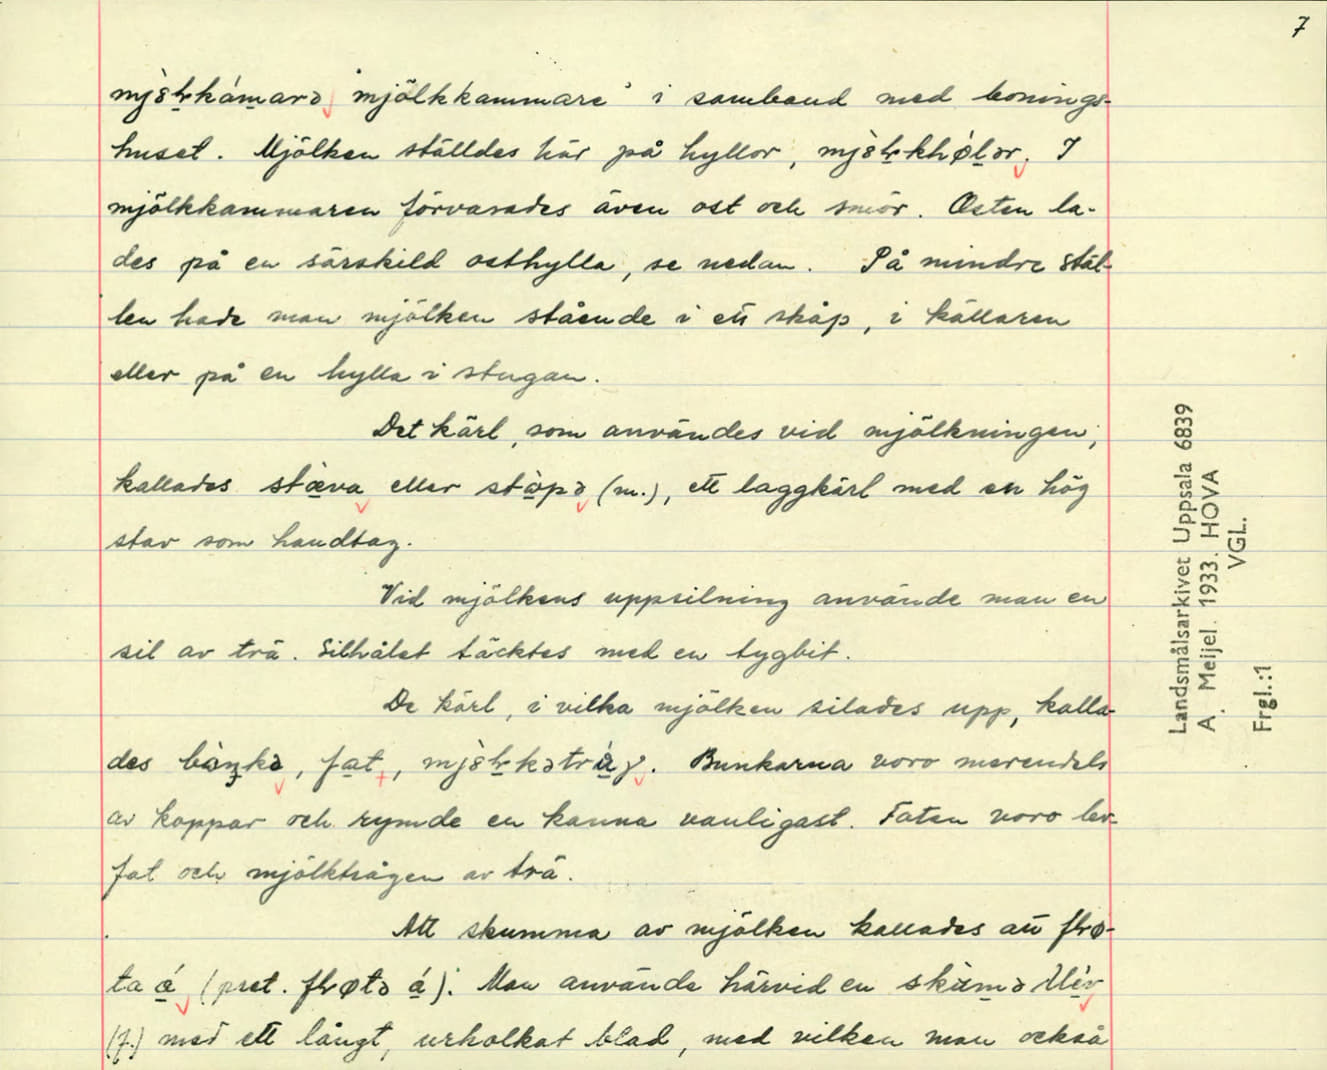 7
mjö̀ḷkkámarə 'mjölkkammare' i samband med bonings-
huset. Mjölken ställdes här på hyllor, mjö̀ḷkhǿlər. I
mjölkkammaren förvarades även ost och smör. Osten la-
des på en särskild osthylla, se nedan. På mindre stäl-
len hade man mjölken stående i ett skåp, i källaren
eller på en hylla i stugan.
Det kärl, som användes vid mjölkningen,
kallades stæ̀va eller stɑ̀pə (m.), ett laggkärl med en hög
stav som handtag.
Vid mjölkens uppsilning använde man en
sil av trä. Silhålet täcktes med en tygbit.
De kärl, i vilka mjölken silades upp, kalla-
des bùŋkə, fat, mjö̀ḷkətrɑ́g. Bunkarna voro merendels
av koppar och rymde en kanna vanligast. Faten voro ler-
fat och mjölktrågen av trä.
Att skumma av mjölken kallades att flø-
ta á (pret. fløtə á). Man använde härvid en
(f.) med ett långt, urholkat blad, med vilken man också
Landsmålsarkivet Uppsala 6839
A. Meijel. 1933. HOVA
VGL.
Frgl.:1